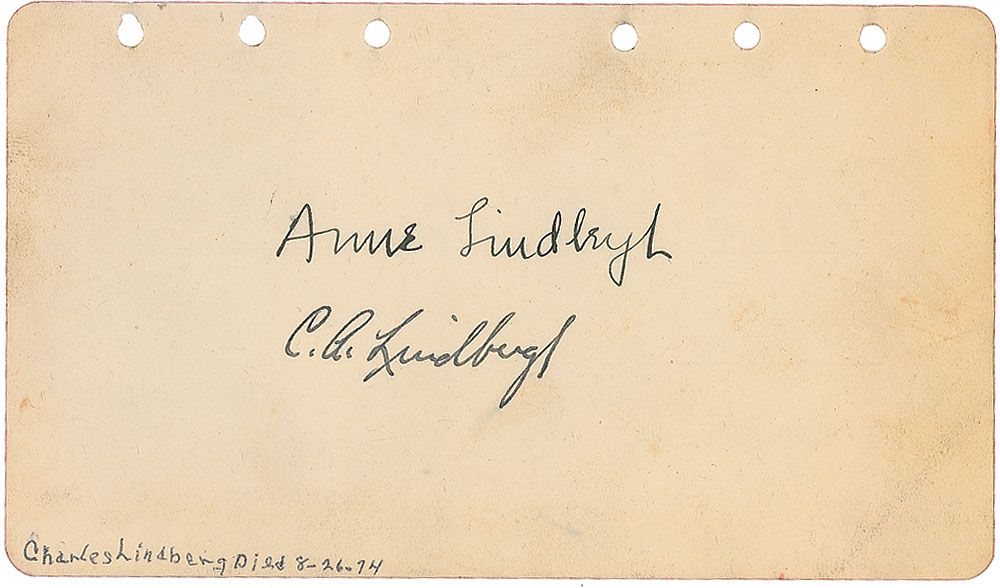 Anne Lindbergh
C. A. Lindbergh
Charles Lindberg Died 8-26-74